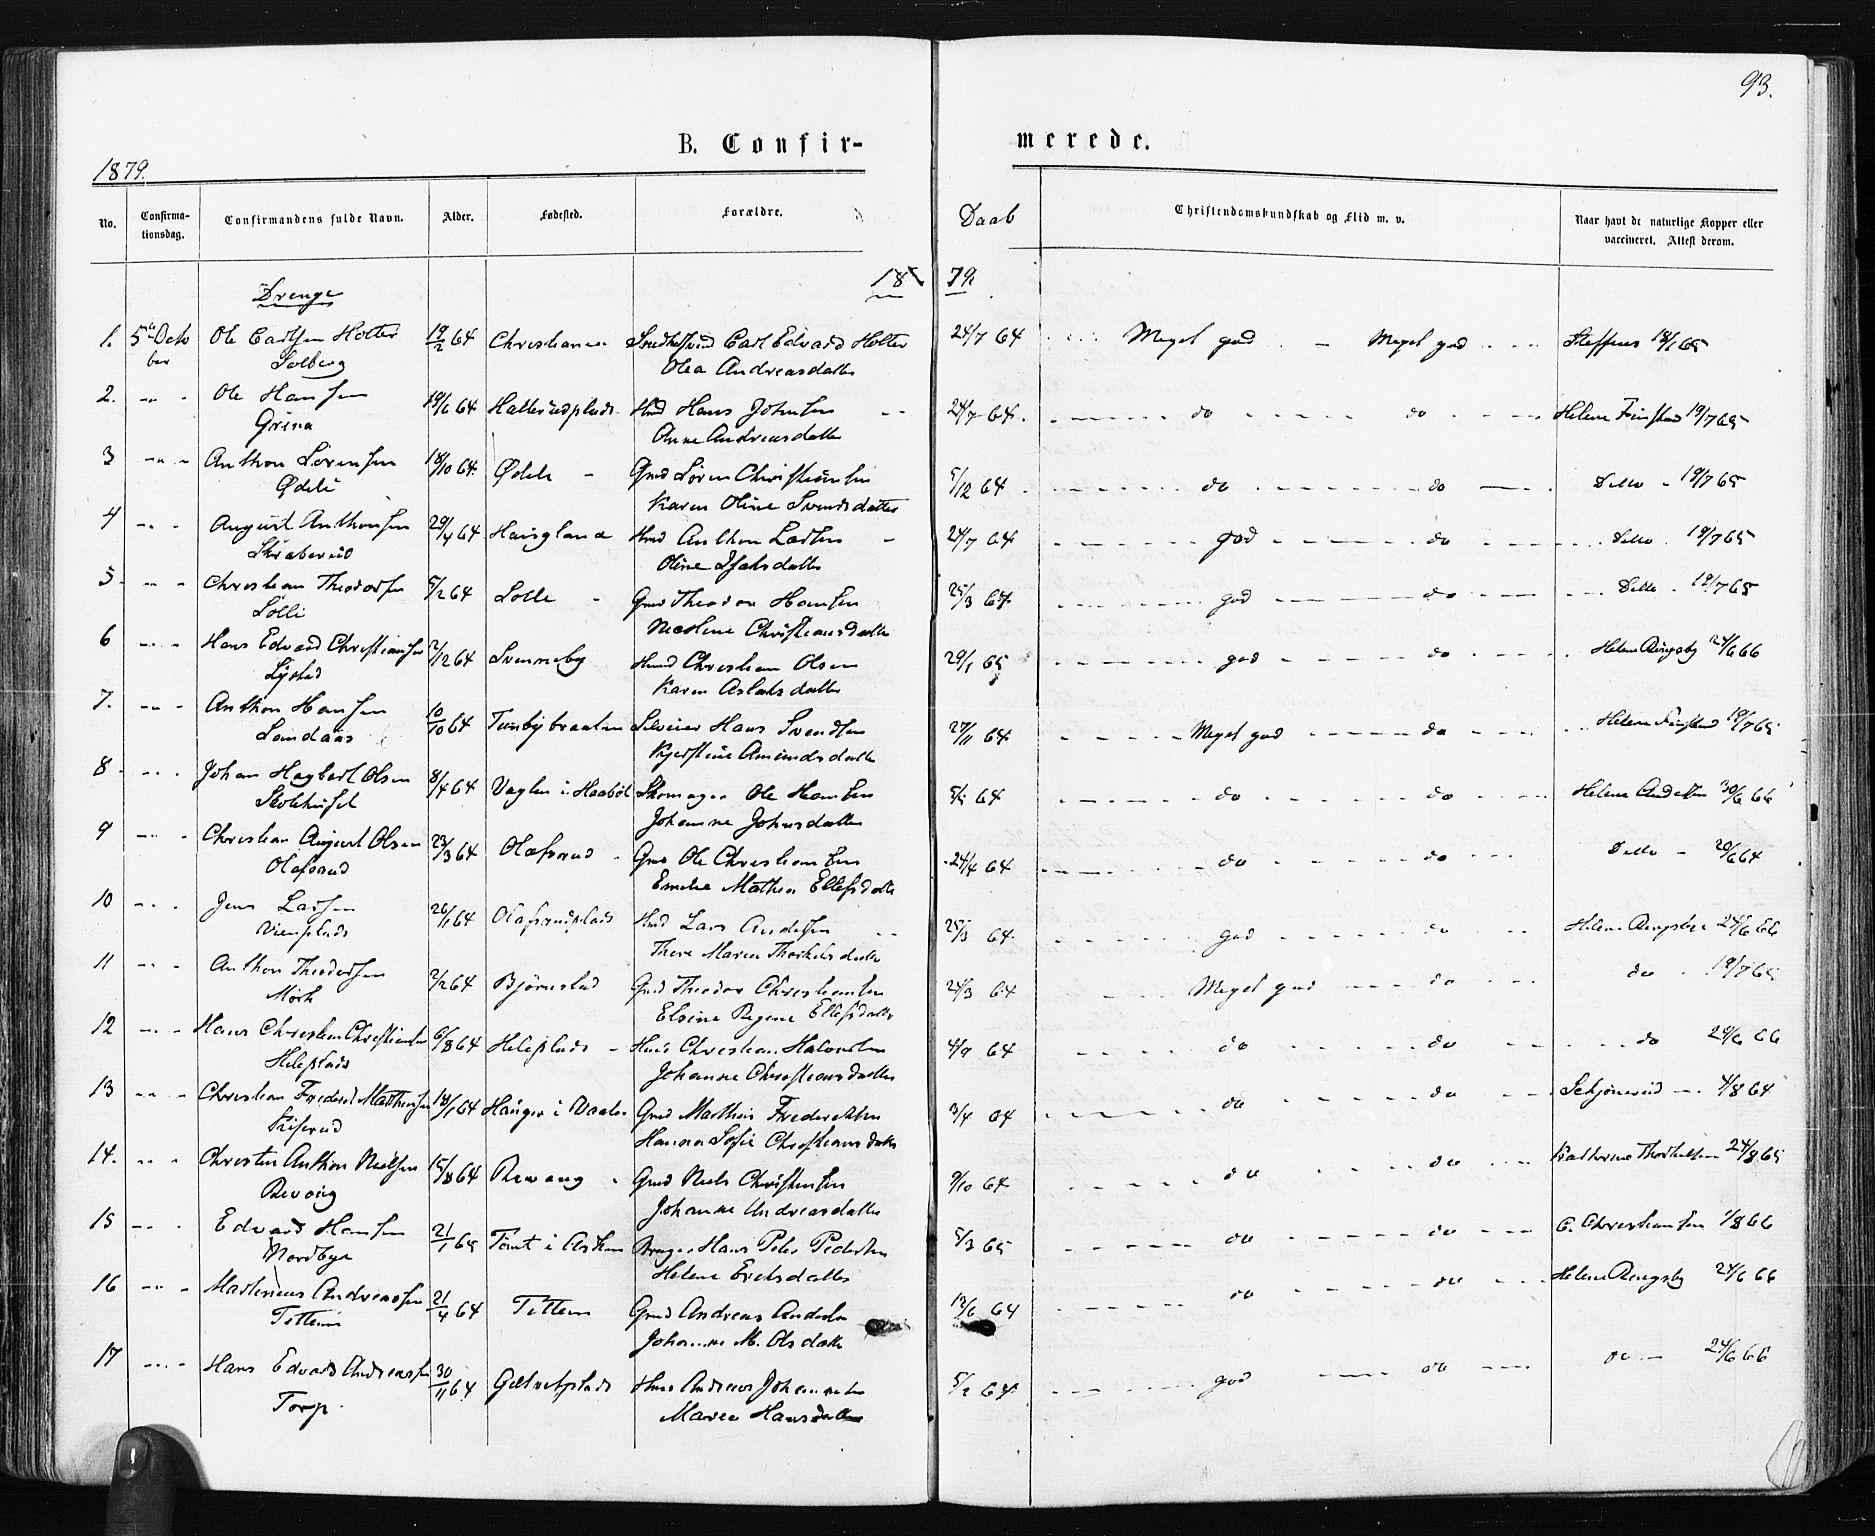 93.
B. Confir-
merede.
1879.
No. Confirma-tionsdag. Confirmandens fulde Navn. Alder. Fødested. Forældre. Daab Christendomskundskab og Flid m. v. Naar havt de naturlige Kopper eller vaccineret. Attest derom.
Drenge 18 79
1. 5te Octo Ole Carlsen Holter 19/2 64 Christiania Carl Edvard Holter 24/7 64 Meget god - Meget god Steffens 18/1 65
ber Solberg Olea Andreasdatter
2. Ole Hansen 19/6 64 Hallerudplads Hmd Hans Johnsen 24/7 64 do do Helene Finstad 19/7 65
Grina Anne Andreasdatter
3 Anthon Sørensen 18/10 64 Ødele Gmd Søren Christiansen 5/12 64 do do Ditto 19/7 65
Ødele Karen Oline Svendsdatter
4 August Anthonsen 29/4 64 Haugland Hmd Anthon Larsen 24/7 64 god do Ditto 19/7 65
Skraberud Oline Isaksdatter
5 Christian Theodorsen 5/2 64 Lolle Gmd Theodor Hansen 25/3 64 god do Ditto 19/7 65
Lolle Nicoline Christiansdatter
6 Hans Edvard Christiansen 2/12 64 Svenneby Hmd Christian Olsen 29/1 65 god do Helene Ringsby 24/6 66
Karen Aslaksdatter
7. Anthon Hansen 10/10 64 Tomtbybraaten Selveier Hans Svendsen 27/11 64 Meget god do Helene Finstad 19/7 65
Sandaas Kjerstine Amundsdatter
8 Johan Hagbart Olsen 8/4 64 Vaglen i Haabøl Skomager Ole Hansen 5/5 64 do do Helene Anders 30/6 66
Skolehuset Johanne Johnsdatter
9 Christian August Olsen 23/3 64 Olafsrud Gmd Ole Christiansen 24/4 64 do do Ditto 20/6 64
Olafsrud Emelie Mathea Ellefsdatter
10 Jens Larsen 26/1 64 Olafsrudplads Hmd Lars Andersen 25/3 64 god do Helene Ringsbye 24/6 66
Vienplads Maren Thorkelsdatter
11 Anthon Theodorsen 2/2 64 Bjørnstad Gmd Theodor Christiansen 24/3 64 Meget god do do 19/7 65
Mørk Elsine Regine Ellefsdatter
12 Hans Christian Christiansen 6/8 64 Heleplads Hmd Christian Halvorsen 4/9 64 do do do 24/6 66
Heleplads Johanne Christiansdatter
13 Christian Frederik Mathiesen 18/1 64 Hauger i Vaaler Gmd Mathias Frederiksen 3/4 64 do do Schjønerud 4/8 64
Kiserud Hanna Sofie Christiansdatter
14. Christen Anthon Nielsen 15/8 64 Revoug Gmd Niels Christensen 9/10 64 do do Kathrine Thorkelsen 24/8 65
Revoug Johanne Andreasdatter
15 Edvard Hansen 21/1 65 Tomt i Askim Hans Peter Pedersen 5/3 65 do do C. Christiansen 1/8 66
Nordbye Helene Eriksdatter
16 Martinius Andreassen 21/4 64 Titterin Gmd Andreas Andersen 12/6 64 do do Helene Ringsby 24/6 66
Titterin Johanne M. Olsdatter
17 Hans Edvard Andreassen 30/11 64 Gætvetplads Hmd Andreas Johannesen 5/2 64 god do do 24/6 66
Torp. Maren Hansdatter